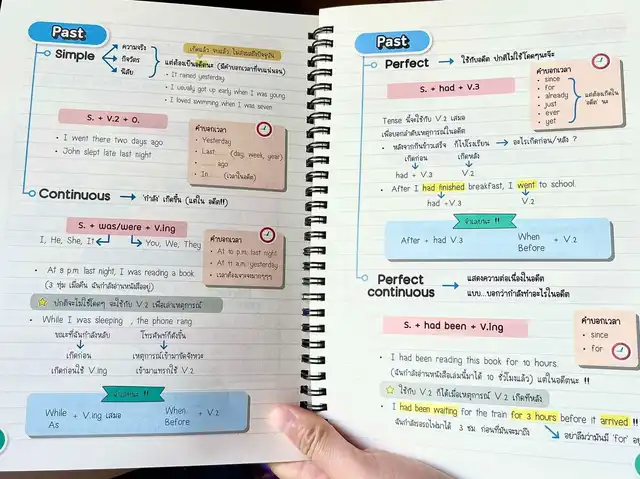 Past
Simple
ความจริง
กิจวัตร
นิสัย
เกิดแล้ว จบแล้ว ไม่ส่งผลถึงปัจจุบัน
แต่ต้องเป็นอดีตนะ (มีคำบอกเวลาที่จบแน่นอน)
• It rained yesterday
• I usually got up early when I was young.
• I loved swimming when I was seven
S. + V.2 + O.
• I went there two days ago
• John slept late last night
คำบอกเวลา
• Yesterday
• Last...... (day, week, year)
• ...... ago
• In..... (เวลาในอดีต)
Continuous
'กำลัง' เกิดขึ้น (แต่ใน อดีต!!)
S. + was/were + V.ing
I, He, She, It
You, We, They
คำบอกเวลา
• At 10 p.m. last night
• At 11 a.m. yesterday
• เวลาต้องเจาะจงมากๆๆๆ
• At 8 p.m. last night, I was reading a book
(3 ทุ่ม เมื่อคืน ฉันกำลังอ่านหนังสืออยู่)
ปกติจะไม่ใช้โดดๆ จะใช้กับ V.2 เพื่อเล่าเหตุการณ์
• While I was sleeping , the phone rang
ขณะที่ฉันกำลังหลับ
โทรศัพท์ก็ดังขึ้น
เกิดก่อน
เหตุการณ์เข้ามาขัดจังหวะ
เกิดก่อนใช้ V.ing
เข้ามาแทรกใช้ V.2
จำเลยนะ !!
While
As
+ V.ing เสมอ
When
Before
+ V.2
Past
Perfect
ใช้กับอดีต ปกติไม่ใช้โดดๆนะจ๊ะ
S. + had + V.3
คำบอกเวลา
• since
• for
• already
• just
• ever
• yet
แต่ต้องเกิดใน
อดีต นะ
Tense นี้จะใช้กับ V.2 เสมอ
เพื่อบอกลำดับเหตุการณ์ในอดีต
• หลังจากกินข้าวเสร็จ ก็ไปโรงเรียน → อะไรเกิดก่อน/หลัง ?
เกิดก่อน
เกิดหลัง
had + V.3
V.2
• After I had finished breakfast, I went to school.
had +V.3
V.2
จำเลยนะ !!
After + had V.3
When
Before
+ V.2
Perfect
continuous
แสดงความต่อเนื่องในอดีต
แบบ...บอกว่ากำลังทำอะไรในอดีต
S. + had been + V.ing
คำบอกเวลา
• since
• for
• I had been reading this book for 10 hours.
(ฉันกำลังอ่านหนังสือเล่มนี้มาได้ 10 ชั่วโมงแล้ว) แต่ในอดีตนะ !!
ใช้กับ V.2 ก็ได้เมื่อเหตุการณ์ V.2 เกิดทีหลัง
• I had been waiting for the train for 3 hours before it arrived !!
ฉันกำลังรอรถไฟมาได้ 3 ชม. ก่อนที่มันจะมาถึง
อย่าลืมว่ามันมี 'for' อยู่